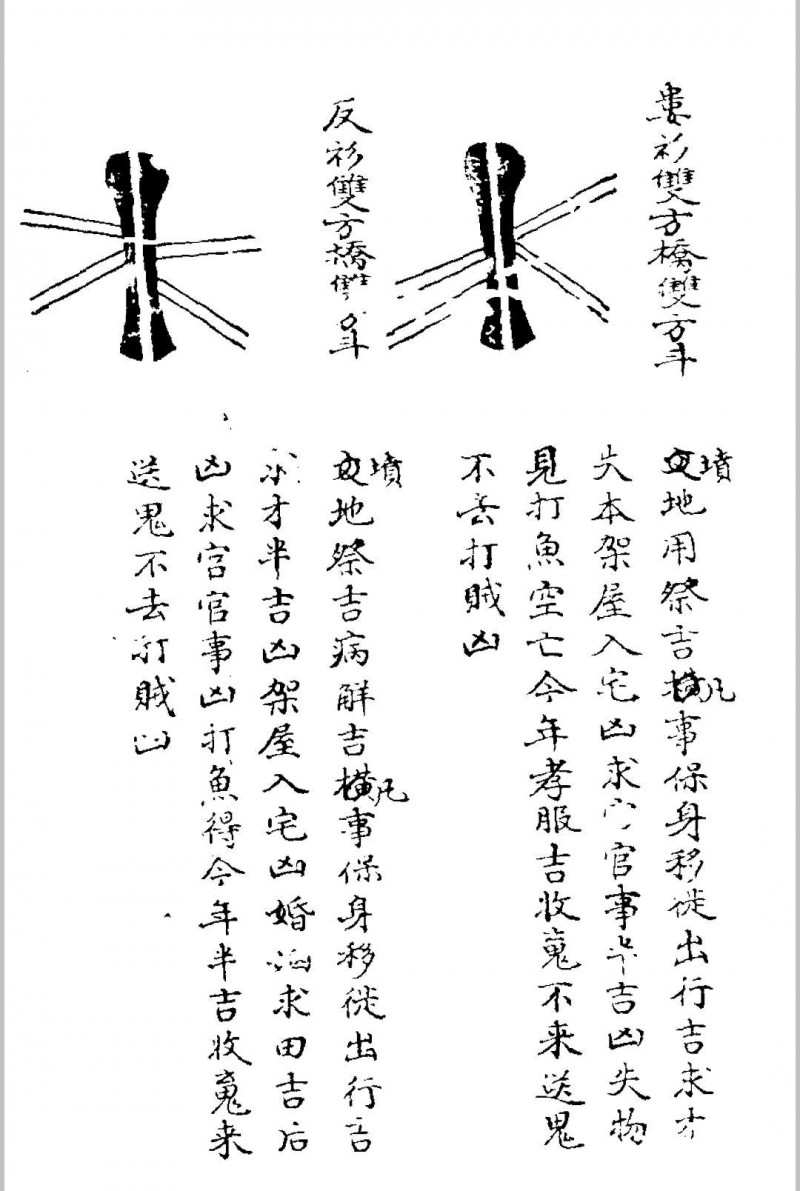 婁衫雙方橋雙方斗
墳地用祭吉凡事保身移徙出行吉求才
失本架屋入宅凶求官事半吉凶失物
見打魚空亡今年孝服吉收魂不来送鬼
不去打賊凶
反衫雙方橋雙方斗
墳地祭吉病解吉凡事保身移徙出行吉
求才半吉凶架屋入宅凶婚求田吉后
凶求官官事凶打魚得今年半吉收魂来
送鬼不去打賊凶